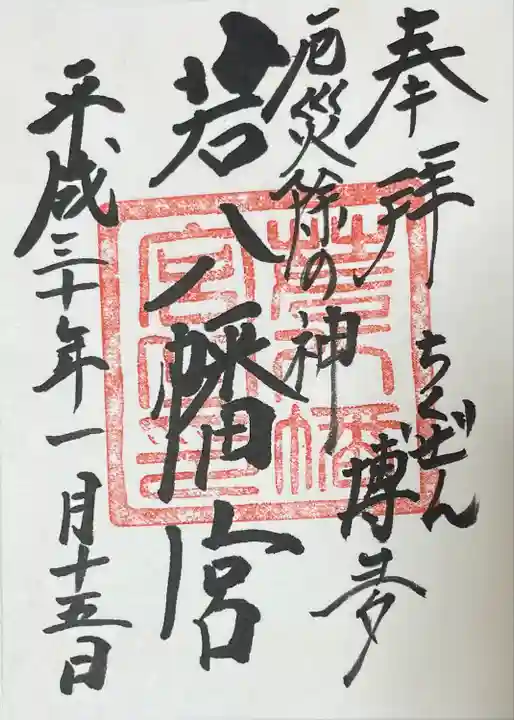 奉拝
ちくぜん
博多
厄災除の神
若八幡宮
平成三十年一月十五日
若八幡宮